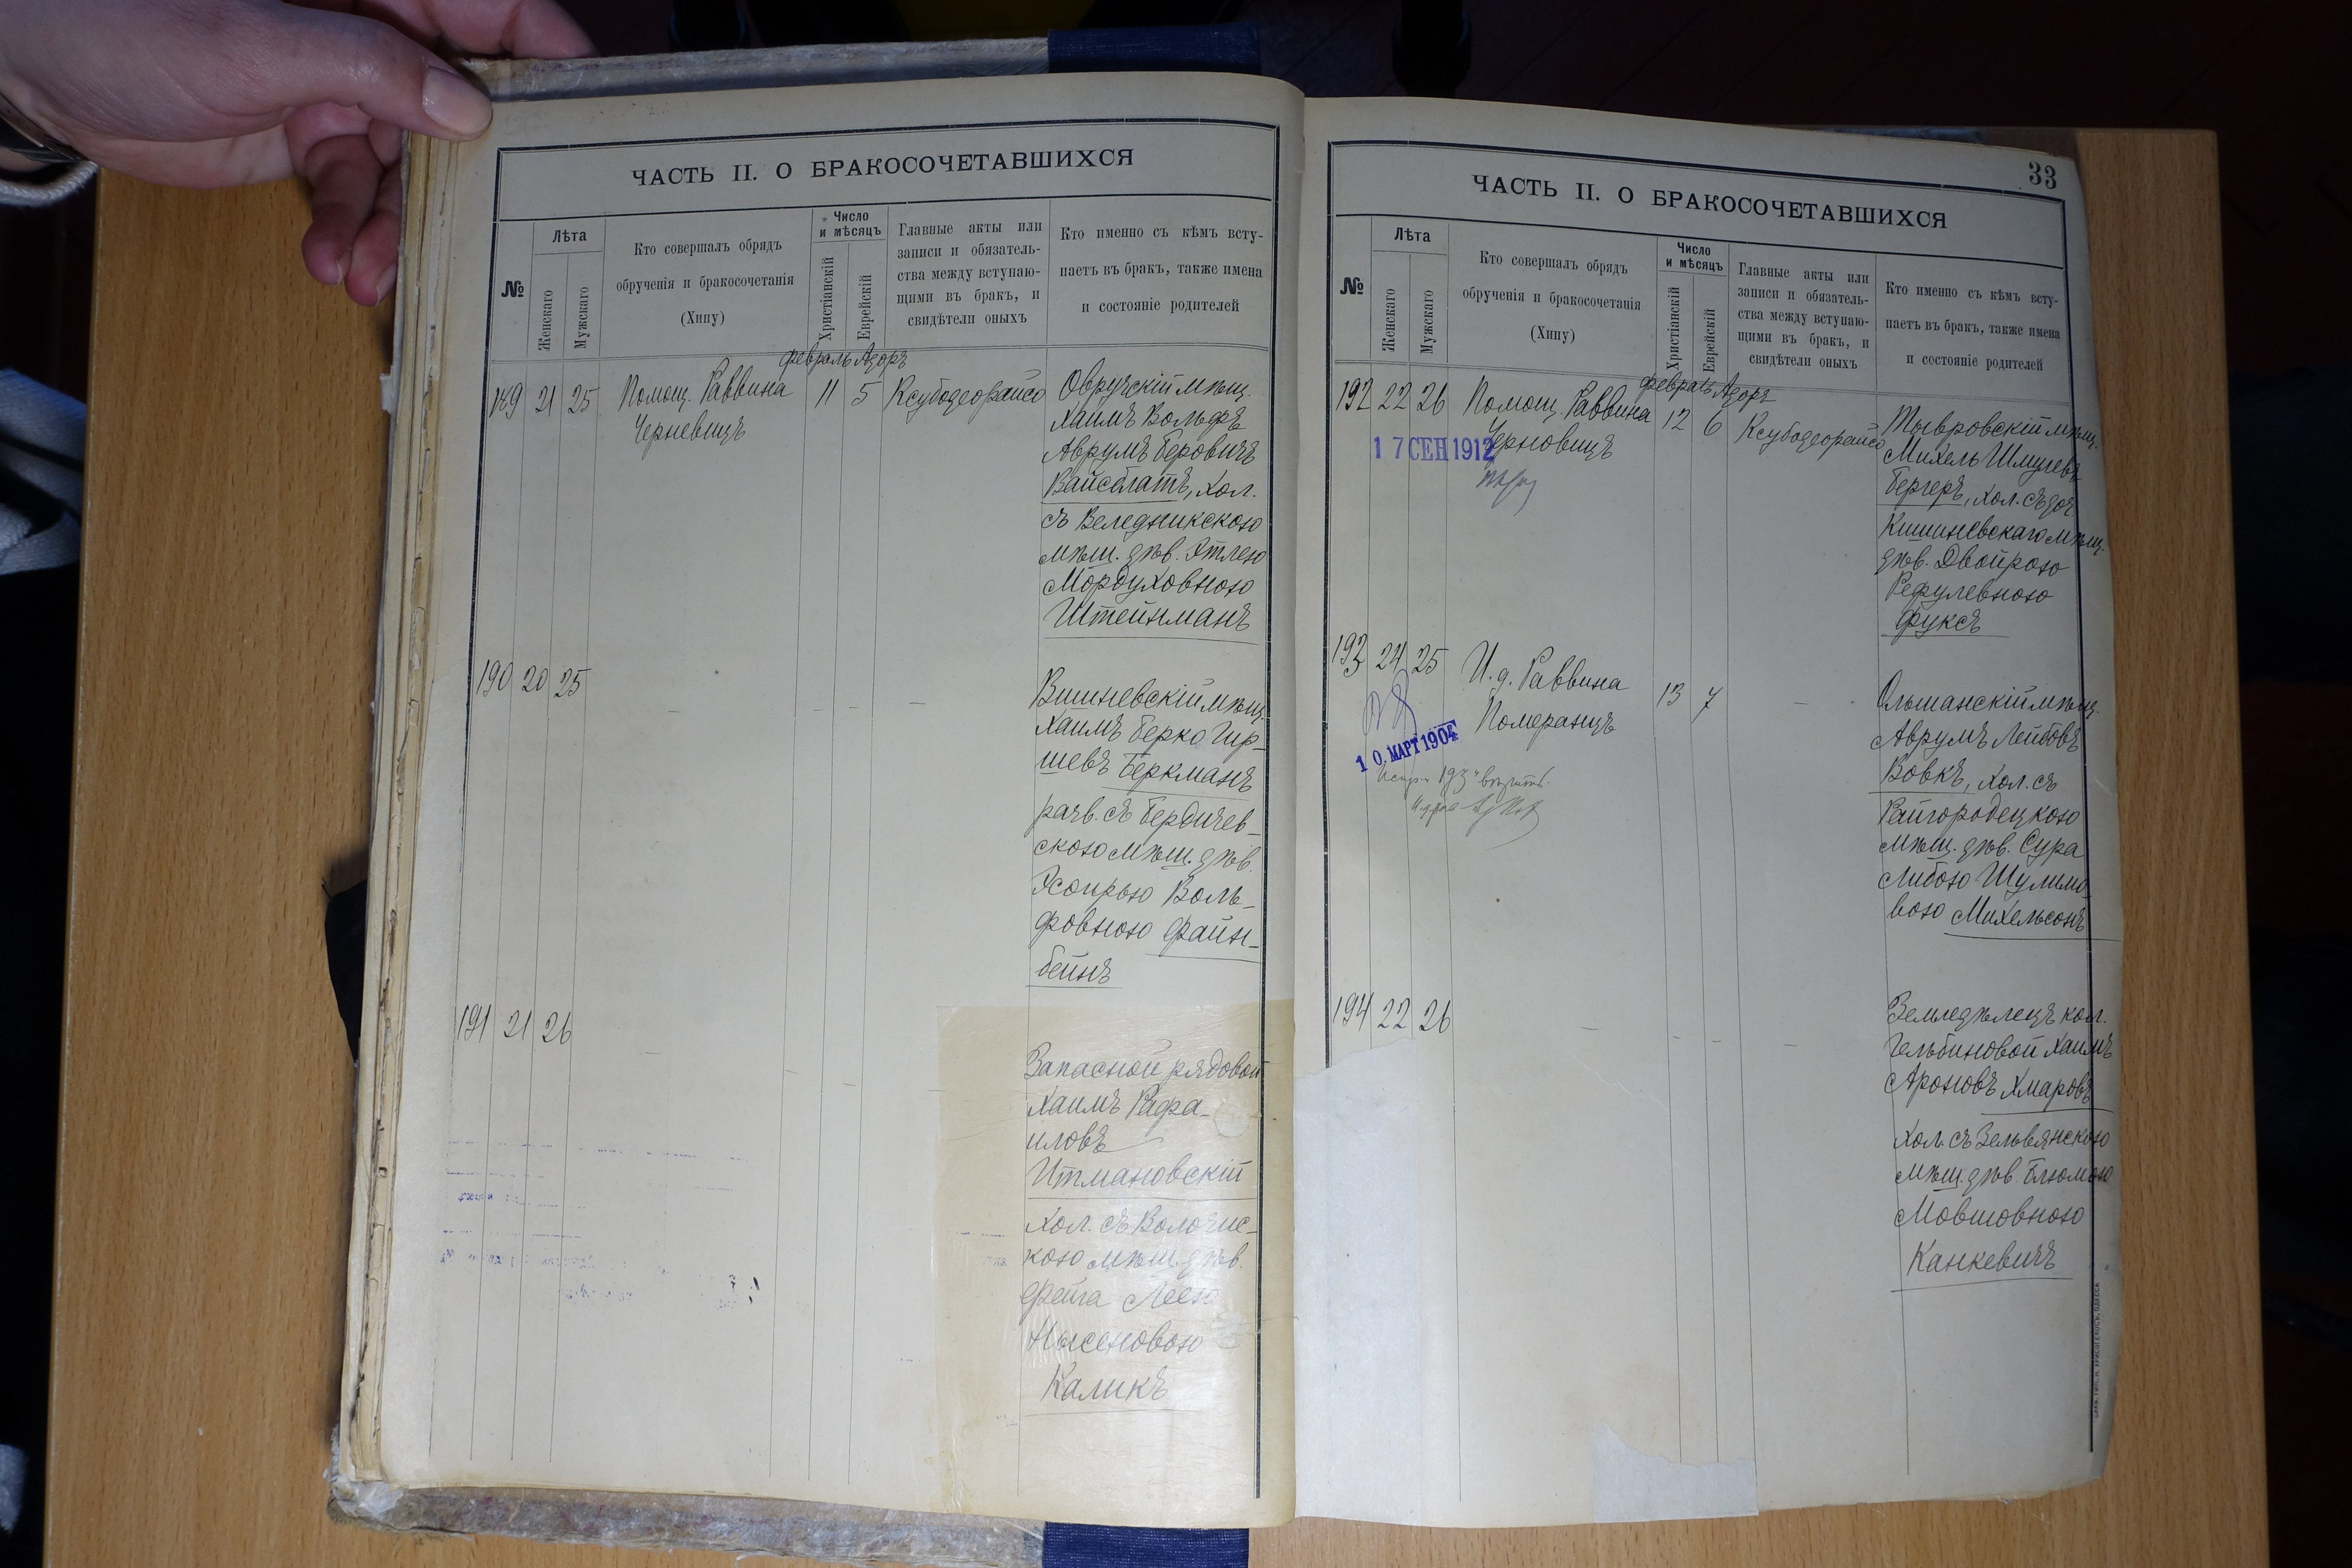 ЧАСТЬ II. О БРАКОСОЧЕТАВШИХСЯ
№
Лѣта
Женскаго
Мужскаго
Кто совершалъ обрядъ
обрученія и бракосочетанія
(Хипу)
Число
и мѣсяцъ
Христіанскій
Еврейскій
Главные акты или
записи и обязатель-
ства между вступаю-
щими въ бракъ, и
свидѣтели оныхъ
Кто именно съ кѣмъ всту-
паетъ въ бракъ, также имена
и состояніе родителей
февраль Адоръ
189 21 25 Помощ. Раввина 11 5 Ксубодеорайсо
Черневицъ
Овручскій мѣщ.
Хаимъ Вольфъ
Аврумъ Беровичъ
Вайсблатъ, хол.
съ Веледникскою
мѣщ. дѣв. Этлею
Мордуховною
Штейнманъ
190 20 25 - - - -
Вишневскій мѣщ.
Хаимъ Берко Гир-
шевъ Беркманъ
разв. съ Бердичев-
скою мѣщ. дѣв.
Эсѳирью Воль-
фовною Файн-
бейнъ
191 21 26 - - - -
Запасной рядовой
Хаимъ Рафа-
иловъ
Итмановскій
хол. съ Волочис-
кою мѣщ. дѣв.
Фейга Леею
Нысеновою
Каликъ
33
ЧАСТЬ II. О БРАКОСОЧЕТАВШИХСЯ
№
Лѣта
Женскаго
Мужскаго
Кто совершалъ обрядъ
обрученія и бракосочетанія
(Хипу)
Число
и мѣсяцъ
Христіанскій
Еврейскій
Главные акты или
записи и обязатель-
ства между вступаю-
щими въ бракъ, и
свидѣтели оныхъ
Кто именно съ кѣмъ всту-
паетъ въ бракъ, также имена
и состояніе родителей
февраль Адоръ
192 22 26 Помощ. Раввина 12 6 Ксубодеорайсо
Черновицъ
17 СЕН 1912
Тывровскій мѣщ.
Михель Шмулевъ
Бергеръ, хол. съ доч.
Кишиневскаго мѣщ.
дѣв. Двойрою
Рефулевною
Фуксъ
193 24 25 И. д. Раввина 13 7 -
Померанцъ
10. МАРТ 1904
Ольшанскій мѣщ.
Аврумъ Лейбовъ
Вовкъ, хол. съ
Райгородецкою
мѣщ. дѣв. Сура
Либою Шулимо-
вою Михельсонъ
194 22 26 - - - -
Земледѣлецъ кол.
Гельбиновой Хаимъ
Ароновъ Хмаровъ
хол. съ Зельвянскою
мѣщ. дѣв. Блюмою
Мовшовною
Канкевичъ